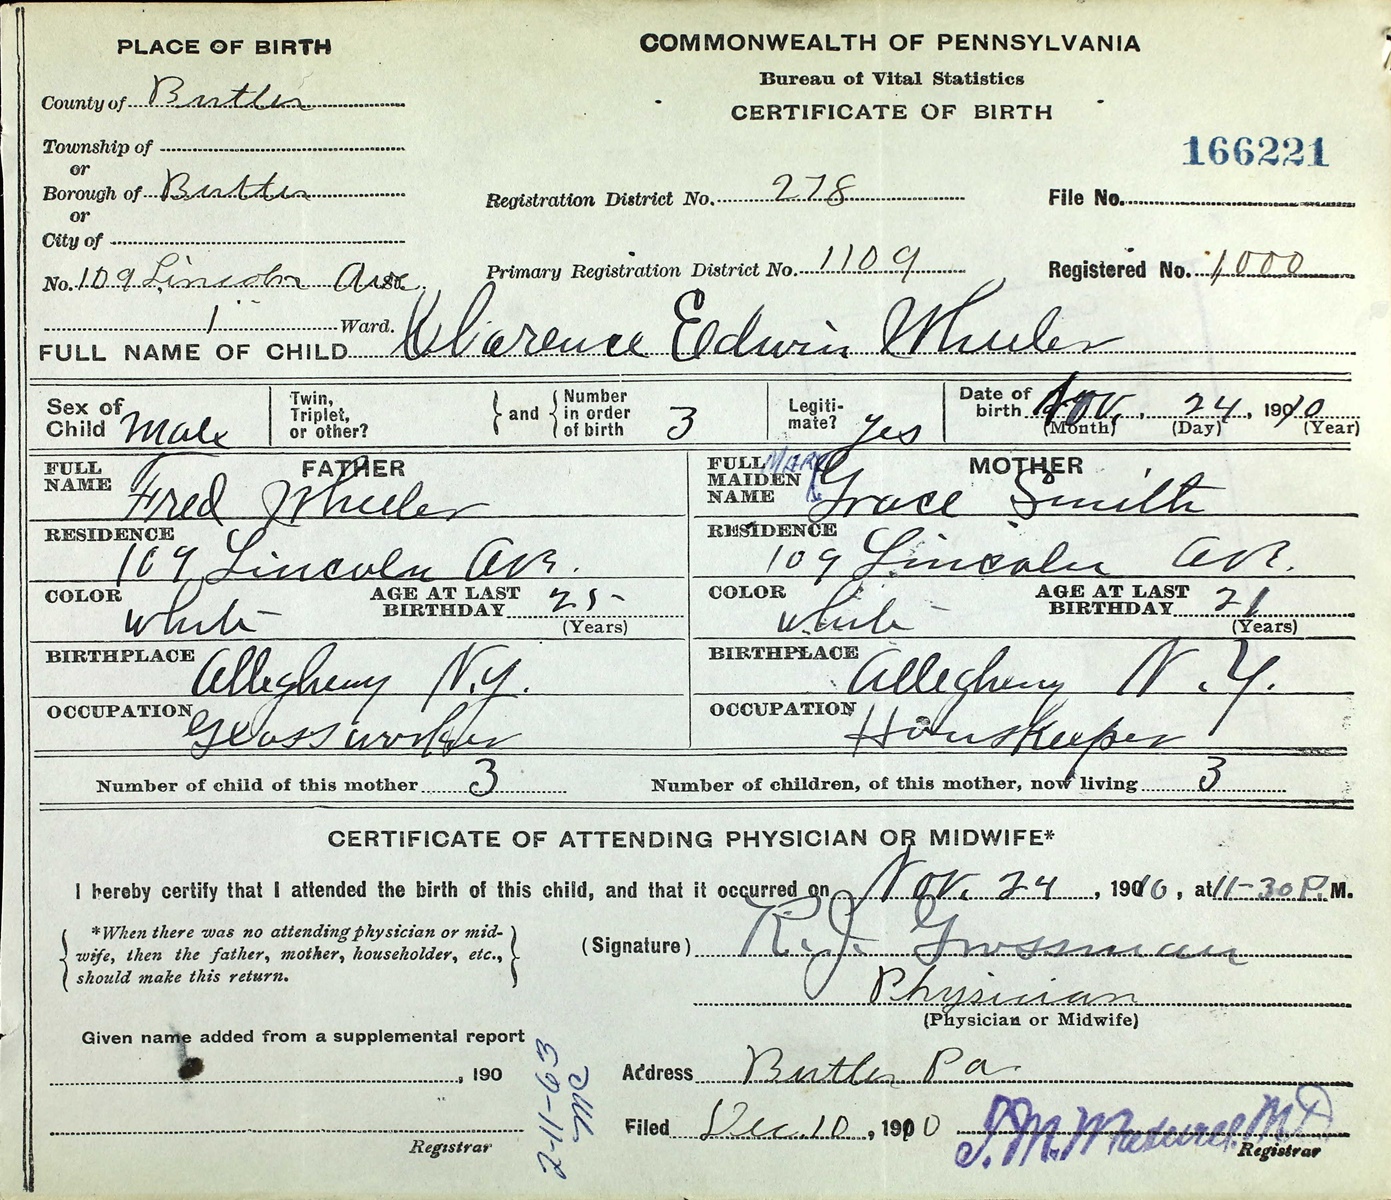 PLACE OF BIRTH
COMMONWEALTH OF PENNSYLVANIA
Bureau of Vital Statistics
CERTIFICATE OF BIRTH
166221
County of Butler
Township of
or
Borough of Butler
or
City of
No. 109 Lincoln Ave.
1 Ward.
Registration District No. 278
File No.
Primary Registration District No. 1109
Registered No. 1000
FULL NAME OF CHILD Clarence Edwin Wheeler
Sex of Child Male
Twin, Triplet, or other?
and Number in order of birth 3
Legitimate? yes
Date of birth Nov. 24, 1910
(Month) (Day) (Year)
FATHER
FULL NAME Fred Wheeler
RESIDENCE 109 Lincoln Ave.
COLOR White
AGE AT LAST BIRTHDAY 25
(Years)
BIRTHPLACE Allegheny N.Y.
OCCUPATION Glassworker
MOTHER
FULL MAIDEN NAME Mary Grace Smith
RESIDENCE 109 Lincoln Ave.
COLOR White
AGE AT LAST BIRTHDAY 21
(Years)
BIRTHPLACE Allegheny N.Y.
OCCUPATION Houskeeper
Number of child of this mother 3
Number of children, of this mother, now living 3
CERTIFICATE OF ATTENDING PHYSICIAN OR MIDWIFE*
I hereby certify that I attended the birth of this child, and that it occurred on Nov. 24, 1910, at 11-30 P.M.
*When there was no attending physician or mid-
wife, then the father, mother, householder, etc.,
should make this return.
(Signature) R.J. Grossman
Physician
(Physician or Midwife)
Given name added from a supplemental report
, 190
Registrar
2-11-63
MC
Address Butler Pa.
Filed Dec. 10, 1910
Registrar